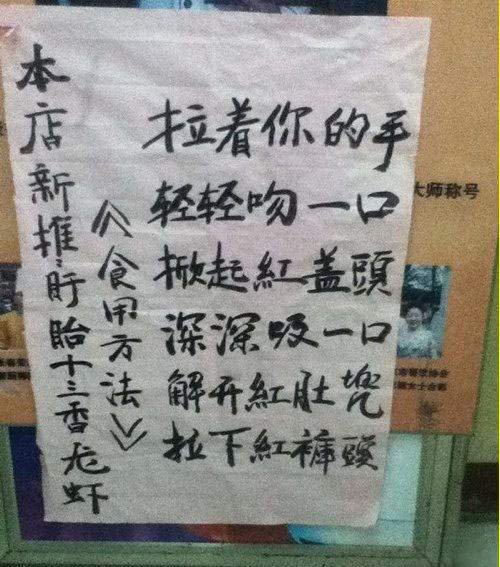 本店新推盱眙十三香龙虾
《食用方法》
拉着你的手
轻轻吻一口
掀起紅盖頭
深深吸一口
解开紅肚兜
拉下紅褲頭
大师称号